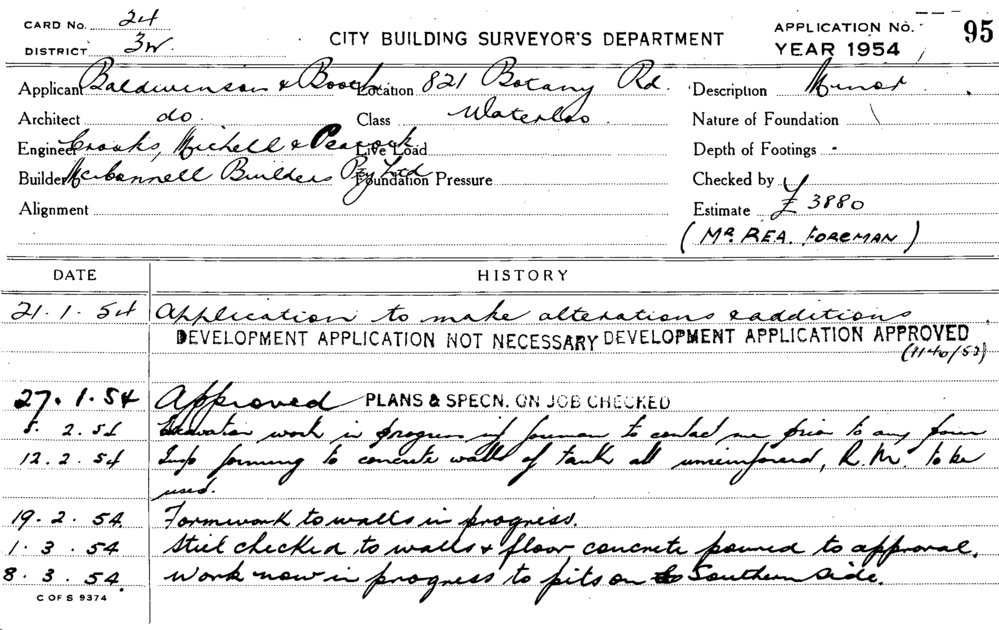 CARD No. 24
DISTRICT 3W.
CITY BUILDING SURVEYOR'S DEPARTMENT
APPLICATION No. 95
YEAR 1954
Applicant Baldwinson & Booth Location 821 Botany Rd. Description Minor
Architect do. Class Waterloo Nature of Foundation
Engineer Crooks, Michell & Peacock Live Load Depth of Footings
Builder McConnell Builders Pty Ltd Foundation Pressure Checked by
Alignment Estimate £ 3880
(MR. REA. FOREMAN)
DATE HISTORY
21.1.54 Application to make alterations & additions
DEVELOPMENT APPLICATION NOT NECESSARY DEVELOPMENT APPLICATION APPROVED
(1140/53)
27.1.54 Approved PLANS & SPECN. ON JOB CHECKED
2.54 Excavation work in progress foreman to contact me prior to any
12.2.54 Insp forming to concrete walls of tank all unreinforced, R.M. to be
used.
19.2.54. Formwork to walls in progress.
1.3.54 Steel checked to walls & floor concrete poured to approval.
8.3.54. Work now in progress to pits on Southern side.
C OF S 9374